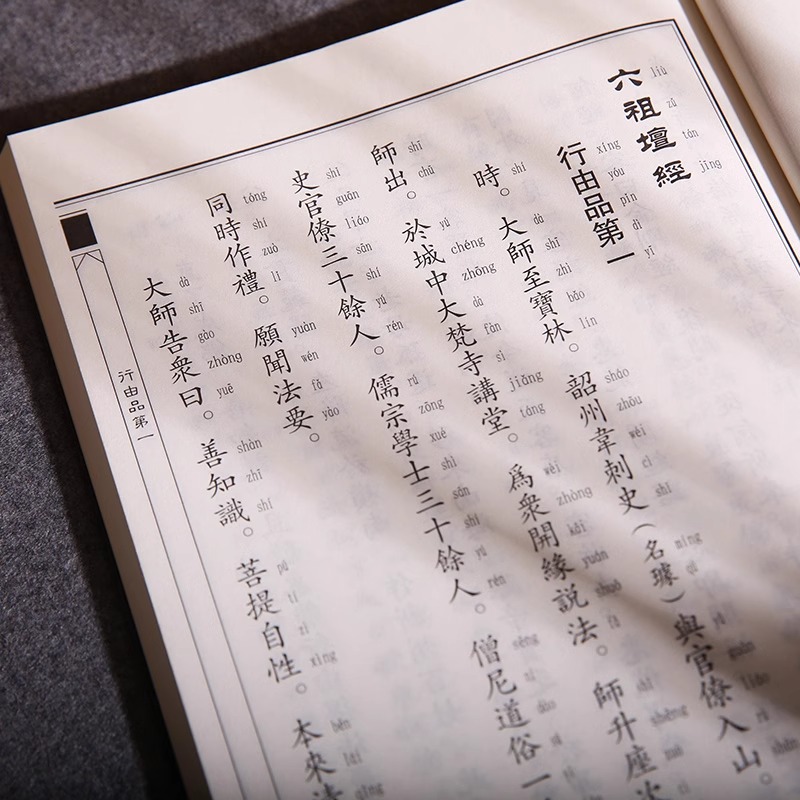 六祖壇經
liù zǔ tán jīng
行由品第一
xíng yóu pǐn dì yī
時。大師至寶林。韶州韋刺史(名璩)與官僚入山。
shí dà shī zhì bǎo lín sháo zhōu wéi cì shǐ míng qú yǔ guān liáo rù shān
師出。於城中大梵寺講堂。爲衆開緣說法。師升座次
shī chū yú chéng zhōng dà fàn sì jiǎng táng wèi zhòng kāi yuán shuō fǎ shī shēng zuò
史官僚三十餘人。儒宗學士三十餘人。僧尼道俗一
shǐ guān liáo sān shí yú rén rú zōng xué shì sān shí yú rén sēng ní dào sú yì
同時作禮。願聞法要。
tóng shí zuò lǐ yuàn wén fǎ yào
大師告衆曰。善知識。菩提自性。本來清
dà shī gào zhòng yuē shàn zhī shí pú tí zì xìng běn lái qīng
行由品第一